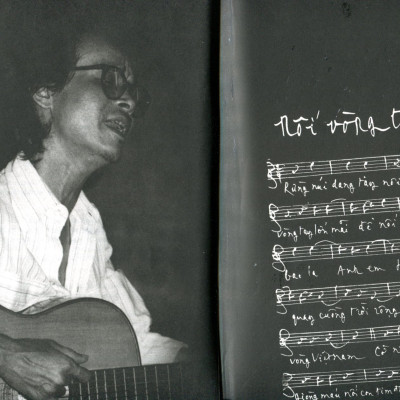 Nối vòng t
Rừng núi dang tay nối
vòng tay lớn mãi để nối
bao la Anh em
quay cuồng trời rộng
vòng Việt nam Cờ n
dòng máu nối con tim đ